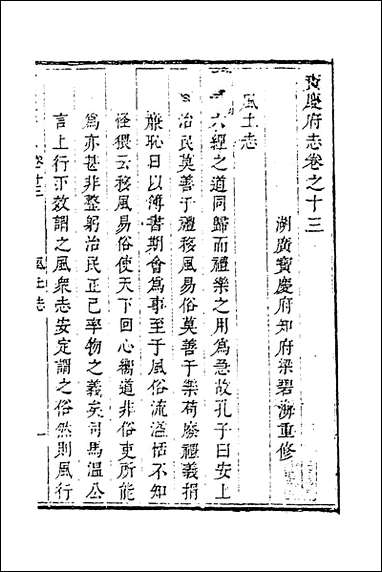 寶慶府志卷之十三
湖廣寶慶府知府梁碧海重修
風土志
六經之道同歸而禮樂之用為急故孔子曰安上
治民莫善于禮移風易俗莫善于樂苟廢禮義捐
廉恥日以簿書期會為事至于風俗流溢恬不知
怪猥云移風易俗使天下回心嚮道非俗吏所能
為亦甚非整躬治民正已率物之義矣司馬溫公
言上行下效謂之風衆志安定謂之俗然則風行
卷十三 風土志 一